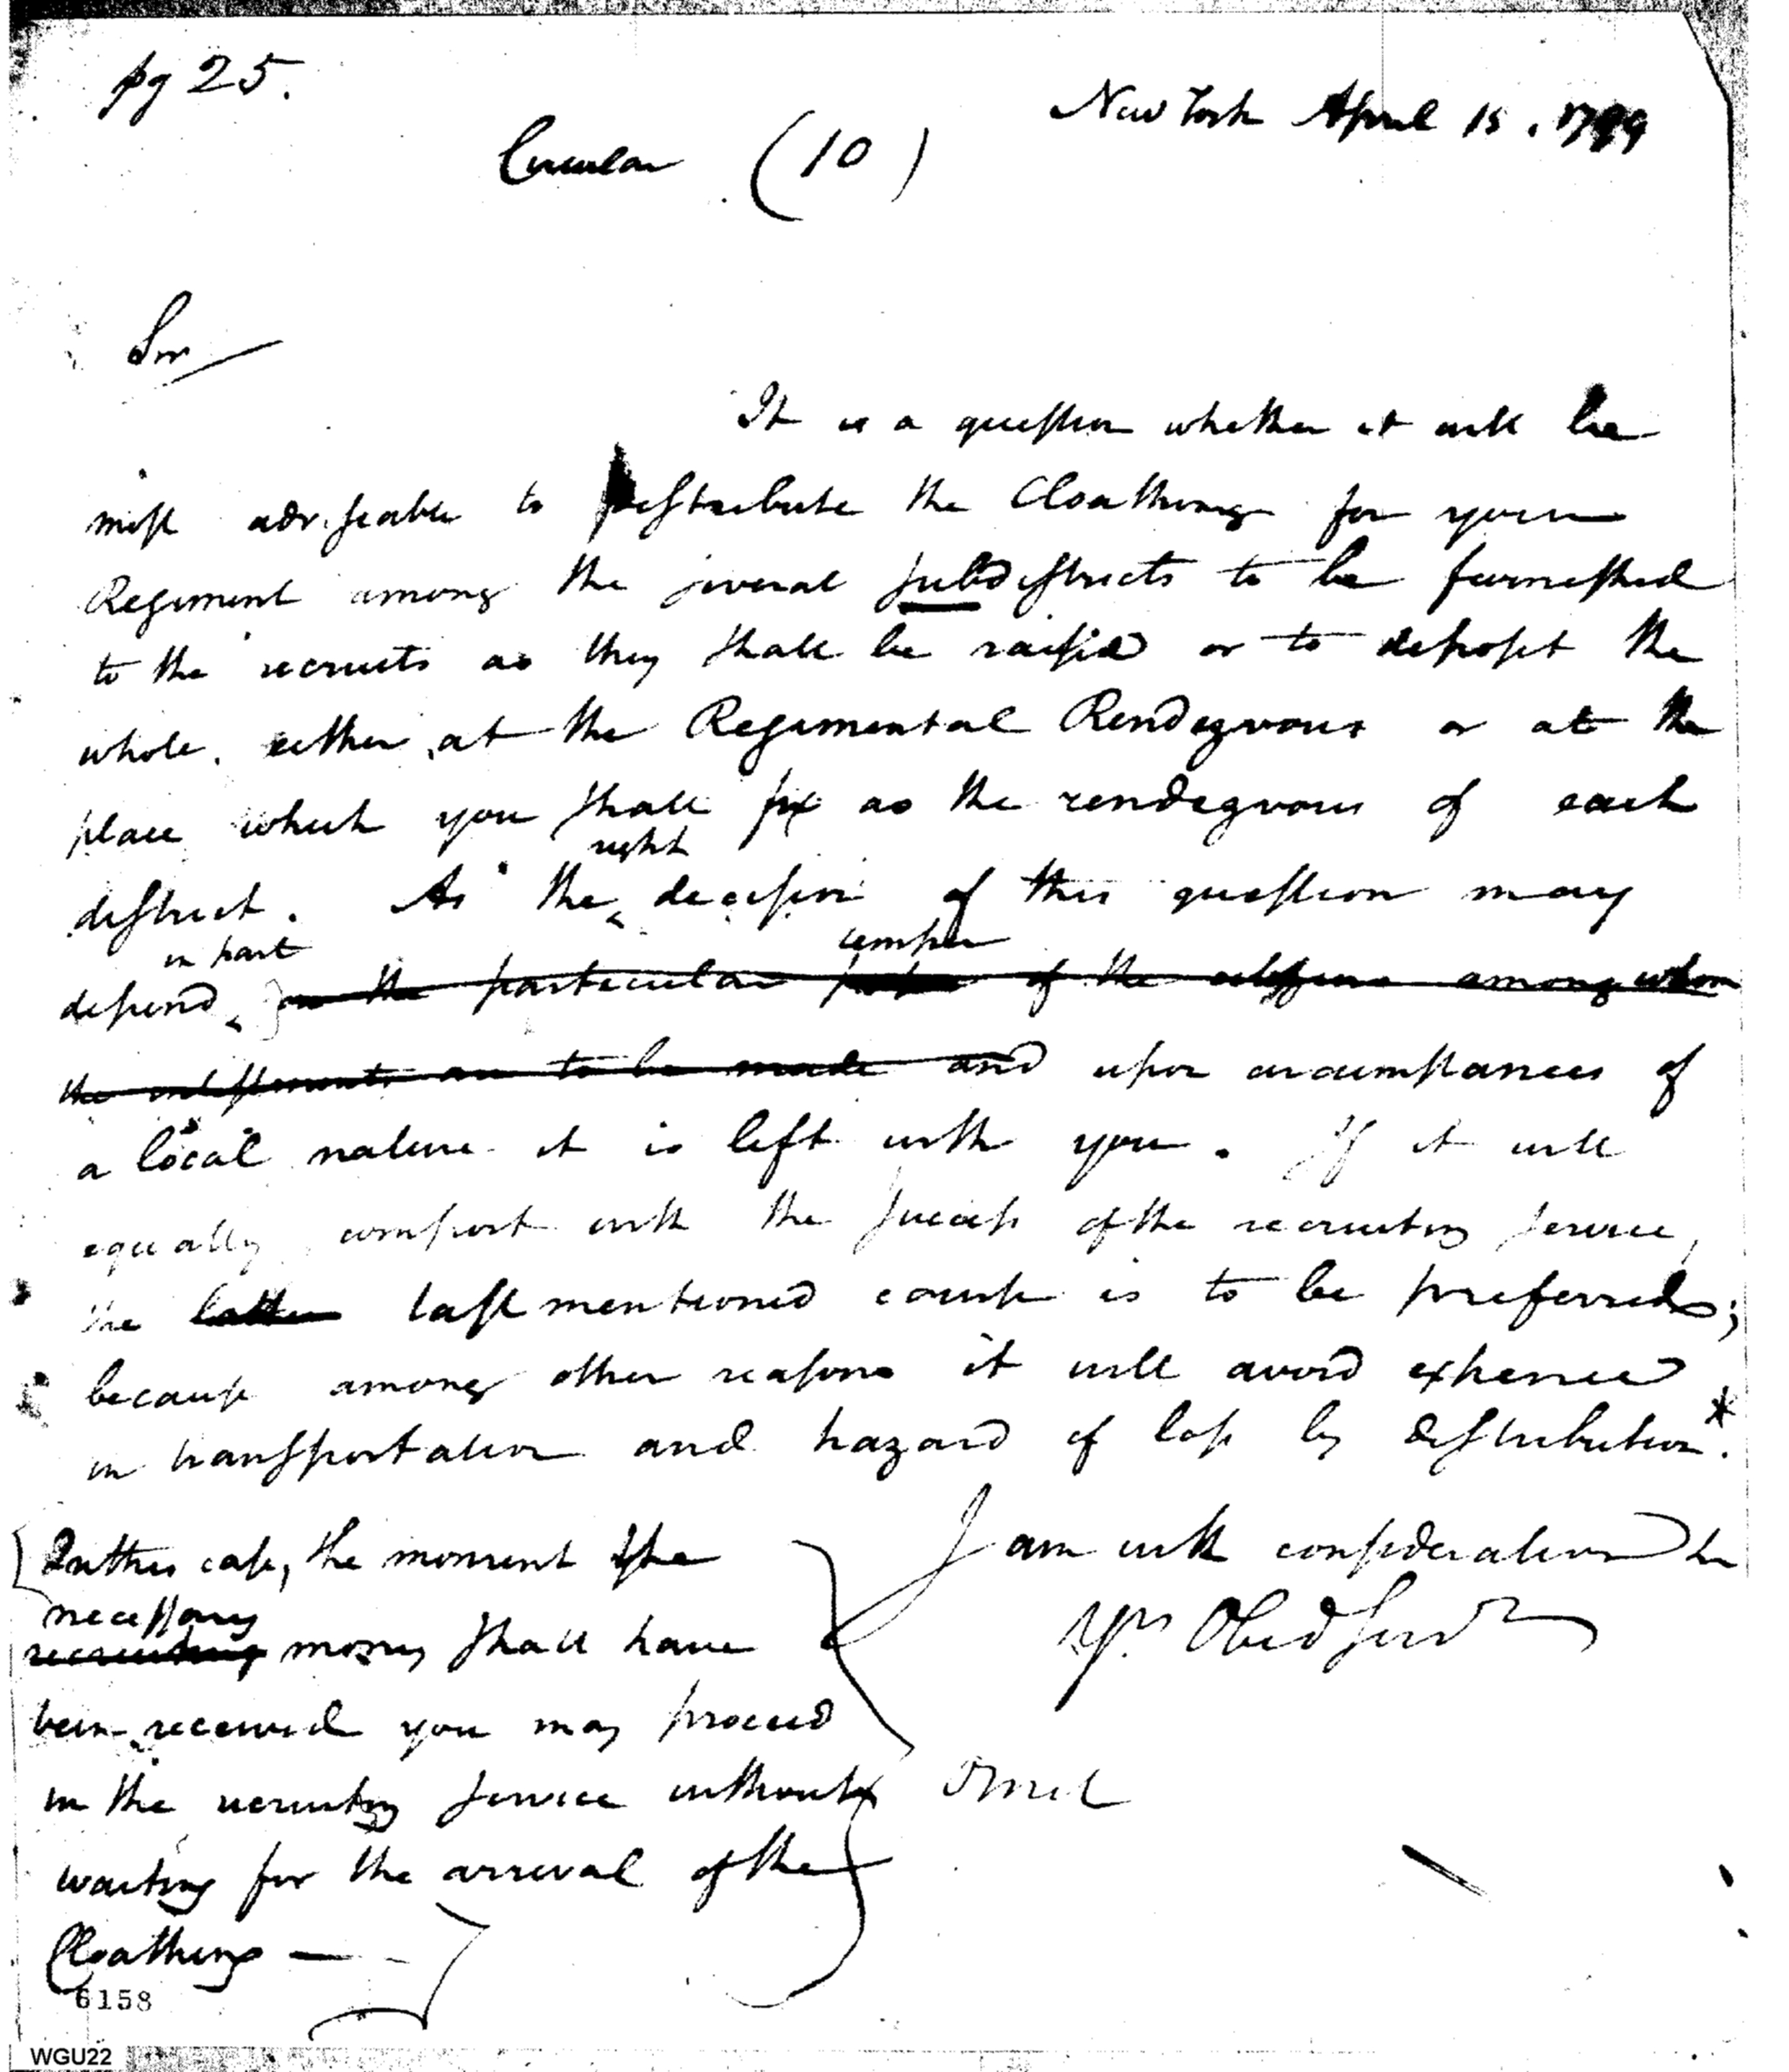 pg 25.
New York April 15. 1799
Circular (10)
Sir
It is a question whether it will be
most adviseable to distribute the Cloathing for your
Regiment among the several subdistricts to be furnished
to the recruits as they shall be raised or to deposit the
whole. either at the Regimental Rendezvous or at the
place which you shall fix as the rendezvous of each
right
district. As the decision of this question may
in part
temper
depend on the particular of the citizens among whom
the enlistments are to be made and upon circumstances of
a local nature it is left with you. If it will
equally comport with the success of the recruiting service,
the latter last mentioned course is to be preferred;
because among other reasons it will avoid expence
in transportation and hazard of loss by distribution.*
I am with consideration
Yr. Obed Serv
In this case, the moment the
necessary
recruiting money shall have
been received you may proceed
in the recruiting service without
waiting for the arrival of the
Cloathing —
6158
WGU22